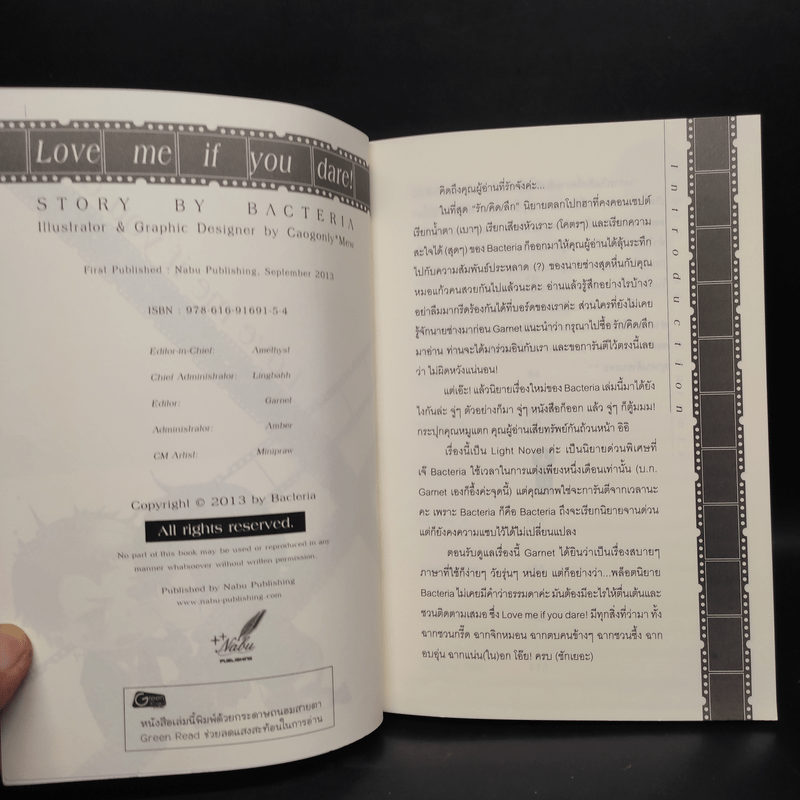 Love me if you dare!
STORY BY BACTERIA
Illustrator & Graphic Designer by Caogonly*Mew
First Published : Nabu Publishing, September 2013
ISBN : 978-616-91691-5-4
Editor-in-Chief: Amethyst
Chief Administrator: Lingbahh
Editor: Garnet
Administrator: Amber
CM Artist: Minipraw
Copyright © 2013 by Bacteria
All rights reserved.
No part of this book may be used or reproduced in any
manner whatsoever without written permission.
Published by Nabu Publishing
www.nabu-publishing.com
Nabu
PUBLISHING
Green Read
หนังสือเล่มนี้พิมพ์ด้วยกระดาษถนอมสายตา
Green Read ช่วยลดแสงสะท้อนในการอ่าน
introduction
คิดถึงคุณผู้อ่านที่รักจังค่ะ...
ในที่สุด "รัก/คิด/ลึก" นิยายตลกโปกฮาที่คงคอนเซปต์
เรียกน้ำตา (เบาๆ) เรียกเสียงหัวเราะ (โคตรๆ) และเรียกความ
สะใจได้ (สุดๆ) ของ Bacteria ก็ออกมาให้คุณผู้อ่านได้ลุ้นระทึก
ไปกับความสัมพันธ์ประหลาด (?) ของนายช่างสุดหื่นกับคุณ
หมอแก้วคนสวยกันไปแล้วนะคะ อ่านแล้วรู้สึกอย่างไรบ้าง?
อย่าลืมมากรีดร้องกันได้ที่บอร์ดของเราค่ะ ส่วนใครที่ยังไม่เคย
รู้จักนายช่างมาก่อน Garnet แนะนำว่า กรุณาไปซื้อ รัก/คิด/ลึก
มาอ่าน ท่านจะได้มาร่วมอินกับเรา และขอการันตีไว้ตรงนี้เลย
ว่า ไม่ผิดหวังแน่นอน!
แต่เอ๊ะ! แล้วนิยายเรื่องใหม่ของ Bacteria เล่มนี้มาได้ยัง
ไงกันล่ะ จู่ๆ ตัวอย่างก็มา จู่ๆ หนังสือก็ออก แล้ว จู่ๆ ก็ตู้มมม!
กระปุกคุณหมูแตก คุณผู้อ่านเสียทรัพย์กันถ้วนหน้า อิอิ
เรื่องนี้เป็น Light Novel ค่ะ เป็นนิยายด่วนพิเศษที่
เจ๊ Bacteria ใช้เวลาในการแต่งเพียงหนึ่งเดือนเท่านั้น (บ.ก.
Garnet เองก็อึ้งค่ะจุดนี้) แต่คุณภาพใช่จะการันตีจากเวลานะ
คะ เพราะ Bacteria ก็คือ Bacteria ถึงจะเรียกนิยายจานด่วน
แต่ก็ยังคงความแซบไว้ได้ไม่เปลี่ยนแปลง
ตอนรับดูแลเรื่องนี้ Garnet ได้ยินว่าเป็นเรื่องสบายๆ
ภาษาที่ใช้ก็ง่ายๆ วัยรุ่นๆ หน่อย แต่ก็อย่างว่า...พล็อตนิยาย
Bacteria ไม่เคยมีคำว่าธรรมดาค่ะ มันต้องมีอะไรให้ตื่นเต้นและ
ชวนติดตามเสมอ ซึ่ง Love me if you dare! มีทุกสิ่งที่ว่ามา ทั้ง
ฉากชวนกรี๊ด ฉากจิกหมอน ฉากตบคนข้างๆ ฉากชวนซึ้ง ฉาก
อบอุ่น ฉากแน่น(ใน)อก โอ๊ย! ครบ (ซักเยอะ)